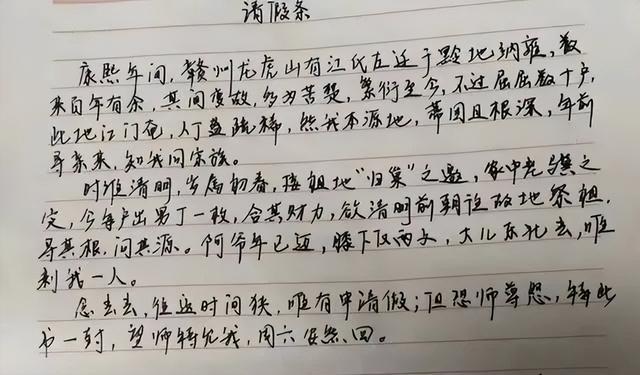 请假条
康熙年间，赣州龙虎山有江氏左迁于黔地纳雍，数
来百年有余，其间变故，多为苦楚，繁衍至今，不过屈屈数十户，
此地江门奄，人丁益疏稀，然我本源地，蒂固且根深，年前
寻亲来，知我同宗族。
时维清明，岁属初春，接祖地“归巢”之邀，家中老
定，今每户出男丁一枚，合其财力，欲清明前朝往故地祭祖，
寻其根，问其源。阿爷年已迈，膝下仅两丈，大儿东北去，唯
剩我一人。
念去去，但这时间狭，唯有申请假；但恐师尊怒，特此
书一封，望师特允我，周六安然回。